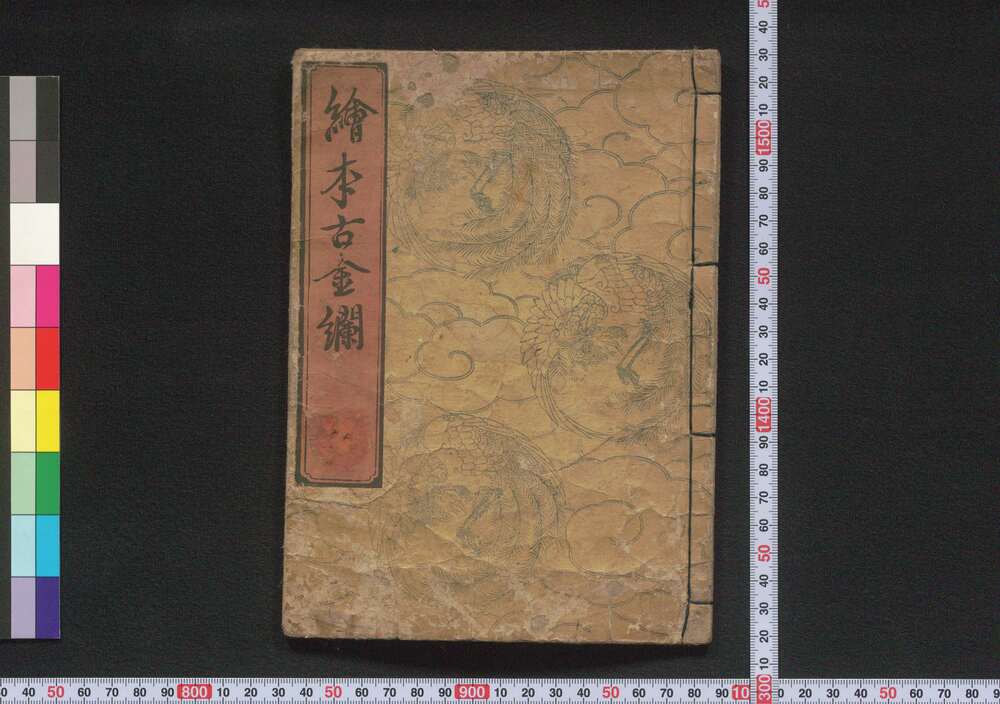 繪本古金襴
50
40
30
20
10
1500
90
80
70
60
50
40
30
20
10
1400
90
80
70
60
50
40
30
20
10
300
0 40 50 60 70 80 90 800 10 20 30 40 50 60 70 80 90 900 10 20 30 40 50 60 70 80 90 10 0 20 30 40 50 60 70 80 9